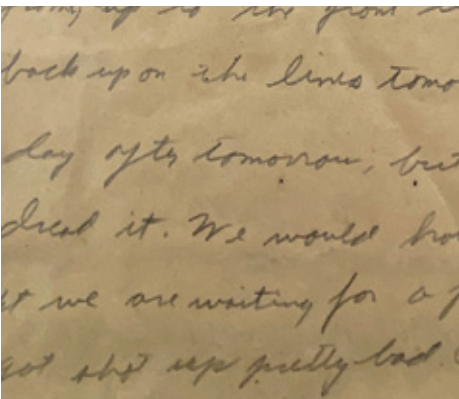 up to the front
back up on the lines tomo
day after tomorrow, but
dread it. We would hav
at we are waiting for a
got shot up pretty bad.